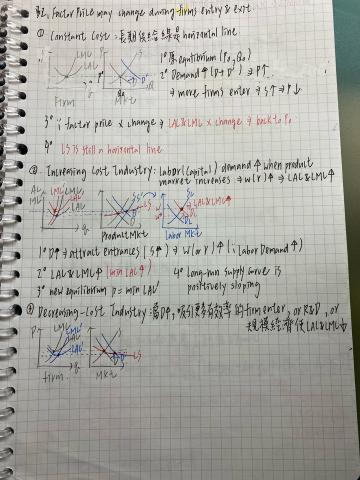 Factor Price may change during firms entry & exit.
① Constant Cost: 長期供給線是horizontal line
LMC
LAC
Firm
MKt
1° 原equilibrium (P₀, Q₀)
2° Demand↑ (D→D') ⇒ P↑
⇒ more firms enter ⇒ S↑ ⇒ P↓
3° ∵ factor price x change ⇒ LAC&LMC x change ⇒ back to P₀
4° LS is still a horizontal line
② Increasing Cost Industry: Labor(Capital) demand↑ when product
market increases ⇒ w(r)↑ ⇒ LAC&LMC↑
Product MKt
Labor MKt
LAC&LMC↑
1° D↑ ⇒ attract entrances (S↑) ⇒ w(or r)↑ (∵ Labor Demand↑)
2° LAC&LMC↑ (min LAC↑)
4° long-run supply curve is
3° new equilibrium P = min LAC'
positively sloping
③ Decreasing-Cost Industry: 當D↑, 吸引更多有效率的firm enter, or R&D, or
規模經濟使LAC&LMC↓
firm
MKt
LS